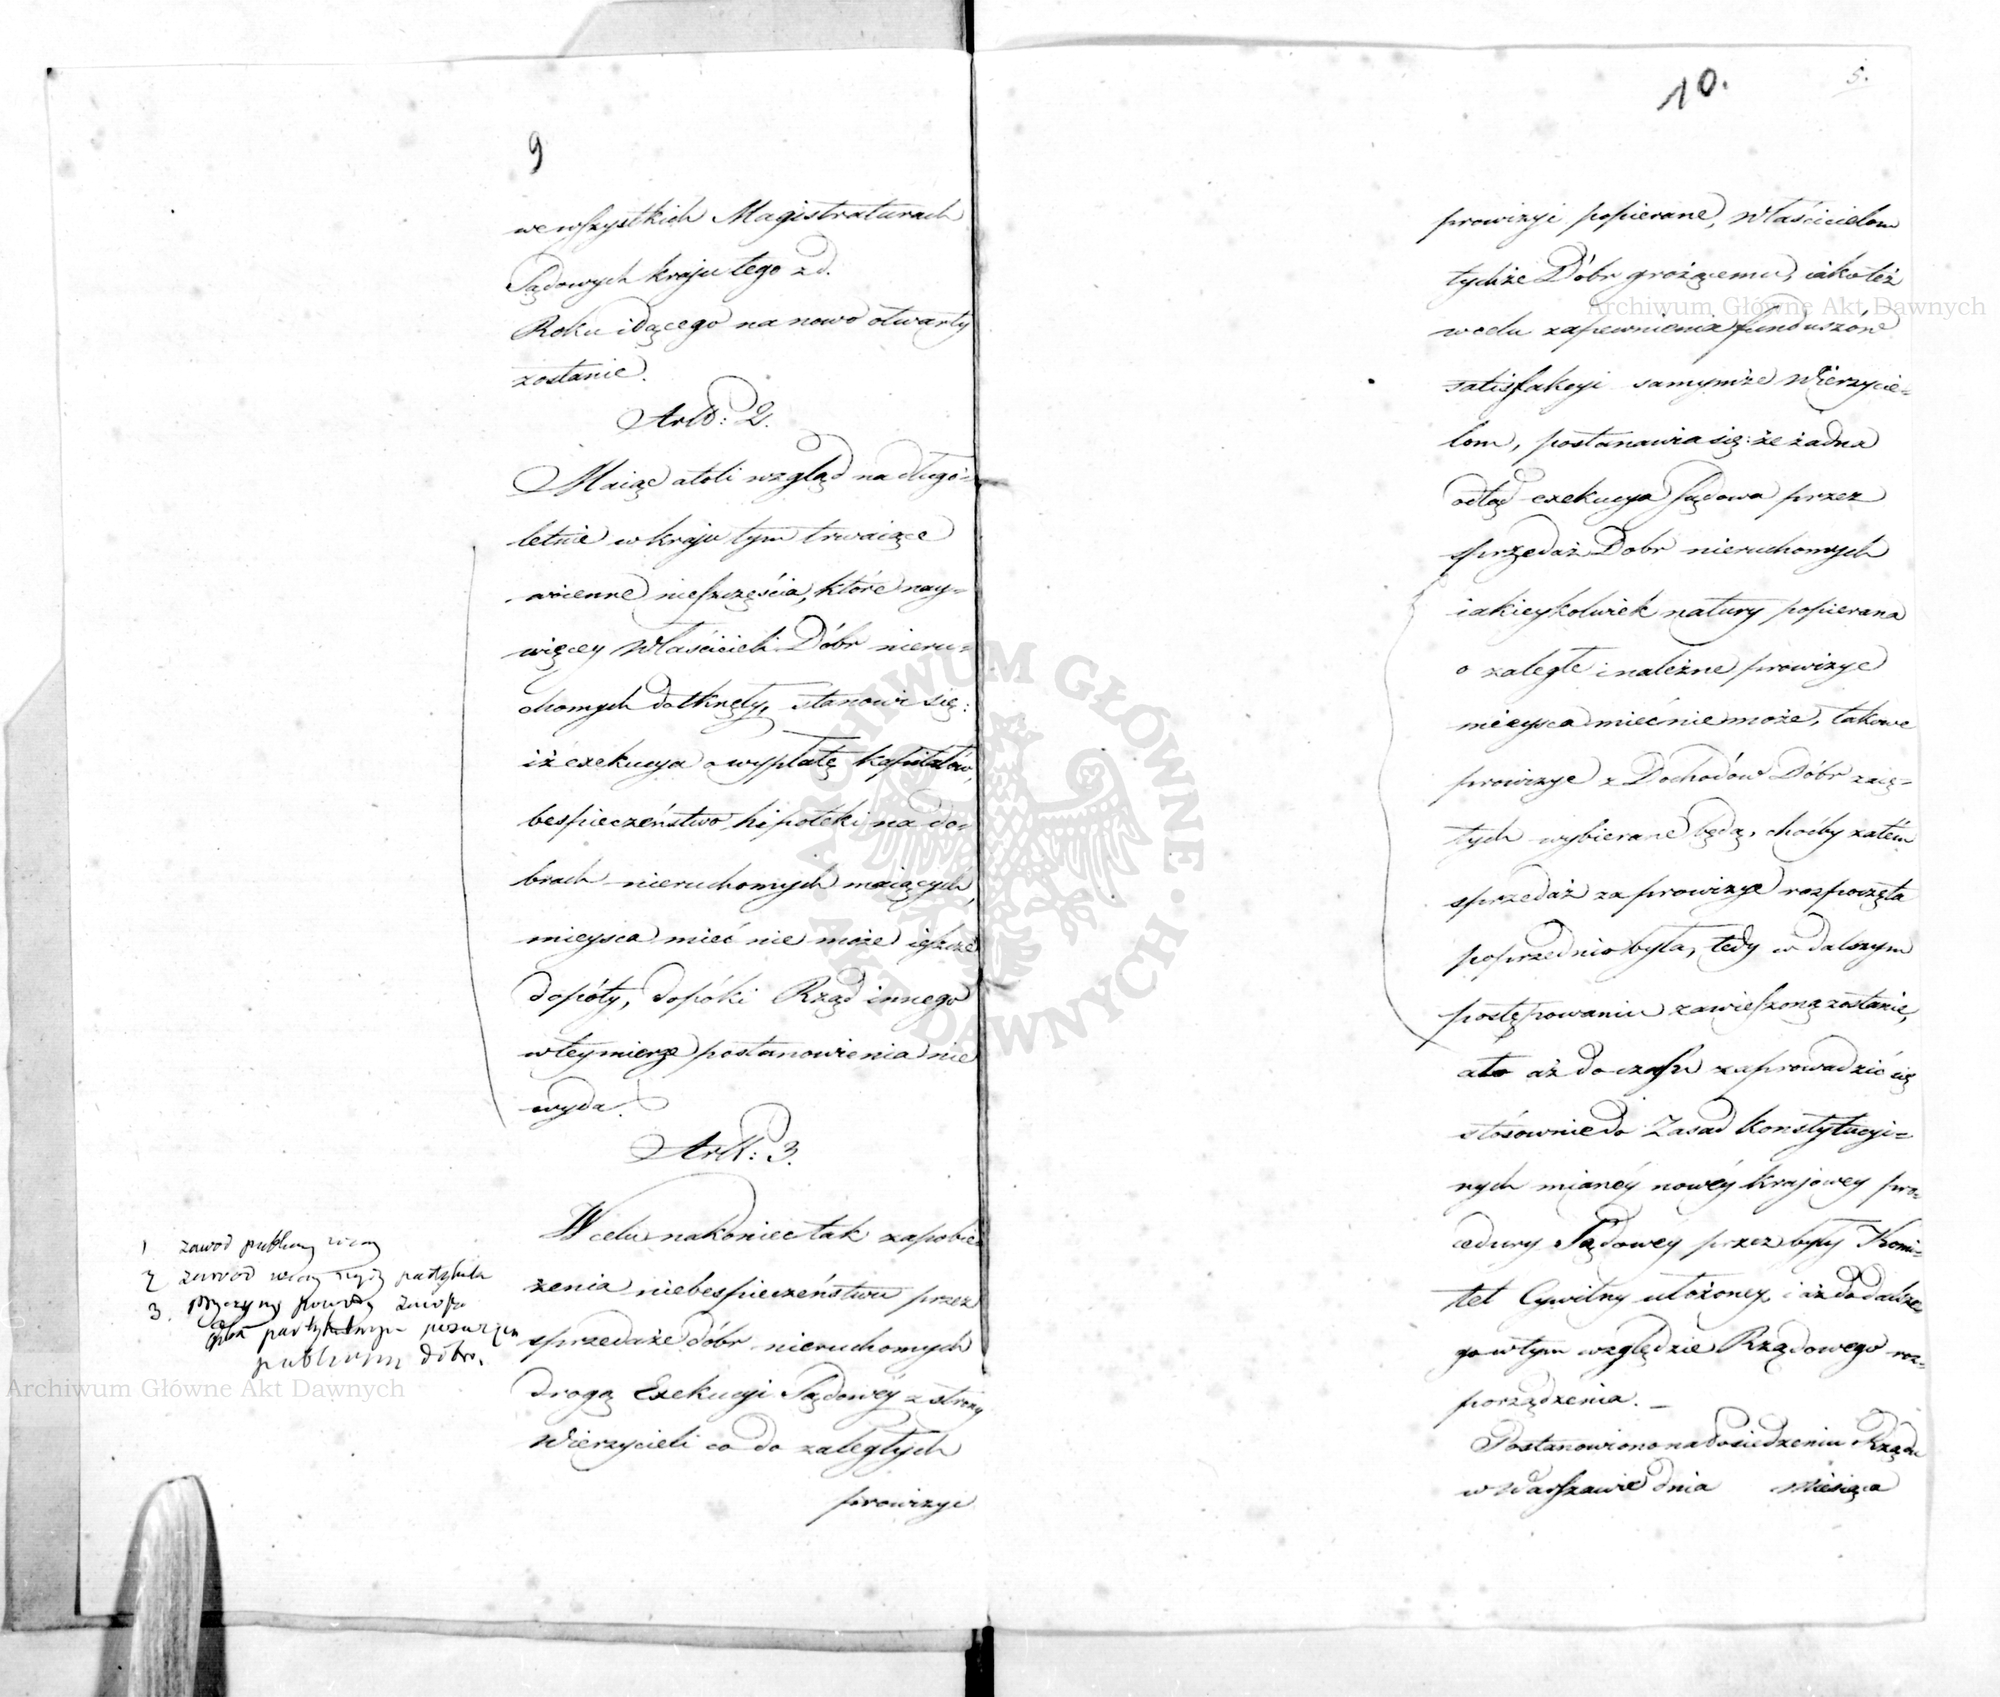 9
we wszystkich Magistraturach
Sądowych kraju tego z d.
Roku idącego na nowo otwarty
zostanie.
Artt: 2.
Maiąc atoli wzgląd na długo-
letnie w kraju tym trwaiące
woienne nieszczęścia, które nay-
więcey Właścicieli Dóbr nieru-
chomych dotknęły, stanowi się:
iż exekucya o wypłatę kapitałów,
bespieczeństwo hipoteki na do-
brach nieruchomych maiących,
mieysca mieć nie może ieszcze
dopóty, dopóki Rząd innego
w tey mierze postanowienia nie
wyda.
Artt: 3.
W celu nakoniec tak zapobie-
żenia niebespieczeństwu przez
sprzedaże dóbr nieruchomych
drogą Exekucyi Sądowéy z strony
Wierzycieli co do zaległych
prowizyi
1 zawód publiczny
2 zawód
3.
publicznym dóbr.
10.
5.
prowizyi popierane, Właścicielom
tychże Dóbr grożącemu, iako też
w celu zapewnienia funduszów
satisfakcyi samymże Wierzycie-
lom, postanawia się: że żadna
odtąd exekucya Sądowa przez
sprzedaż Dobr nieruchomych
iakieykolwiek natury popierana
o zaległe i należne prowizye
mieysca mieć nie może, takowe
prowizye z Dochodów Dóbr zaię-
tych wybierane będą, choćby zatém
sprzedaż za prowizye rozpoczęta
poprzednio była, tedy w dalszym
postępowaniu zawieszoną zostanie,
a to aż do czasu zaprowadzić się
stósownie do Zasad Konstytucyi-
nych mianéy nowéy krajowey pro-
cedury Sądowey przez były Komi-
tet Cywilny ułożoney, i aż do dalsze-
go w tym względzie Rządowego roz-
porządzenia.
Postanowiono na Posiedzeniu Rządu
w Warszawie dnia Miesiąca
Archiwum Główne Akt Dawnych
Archiwum Główne Akt Dawnych
ARCHIWUM GŁÓWNE AKT DAWNYCH